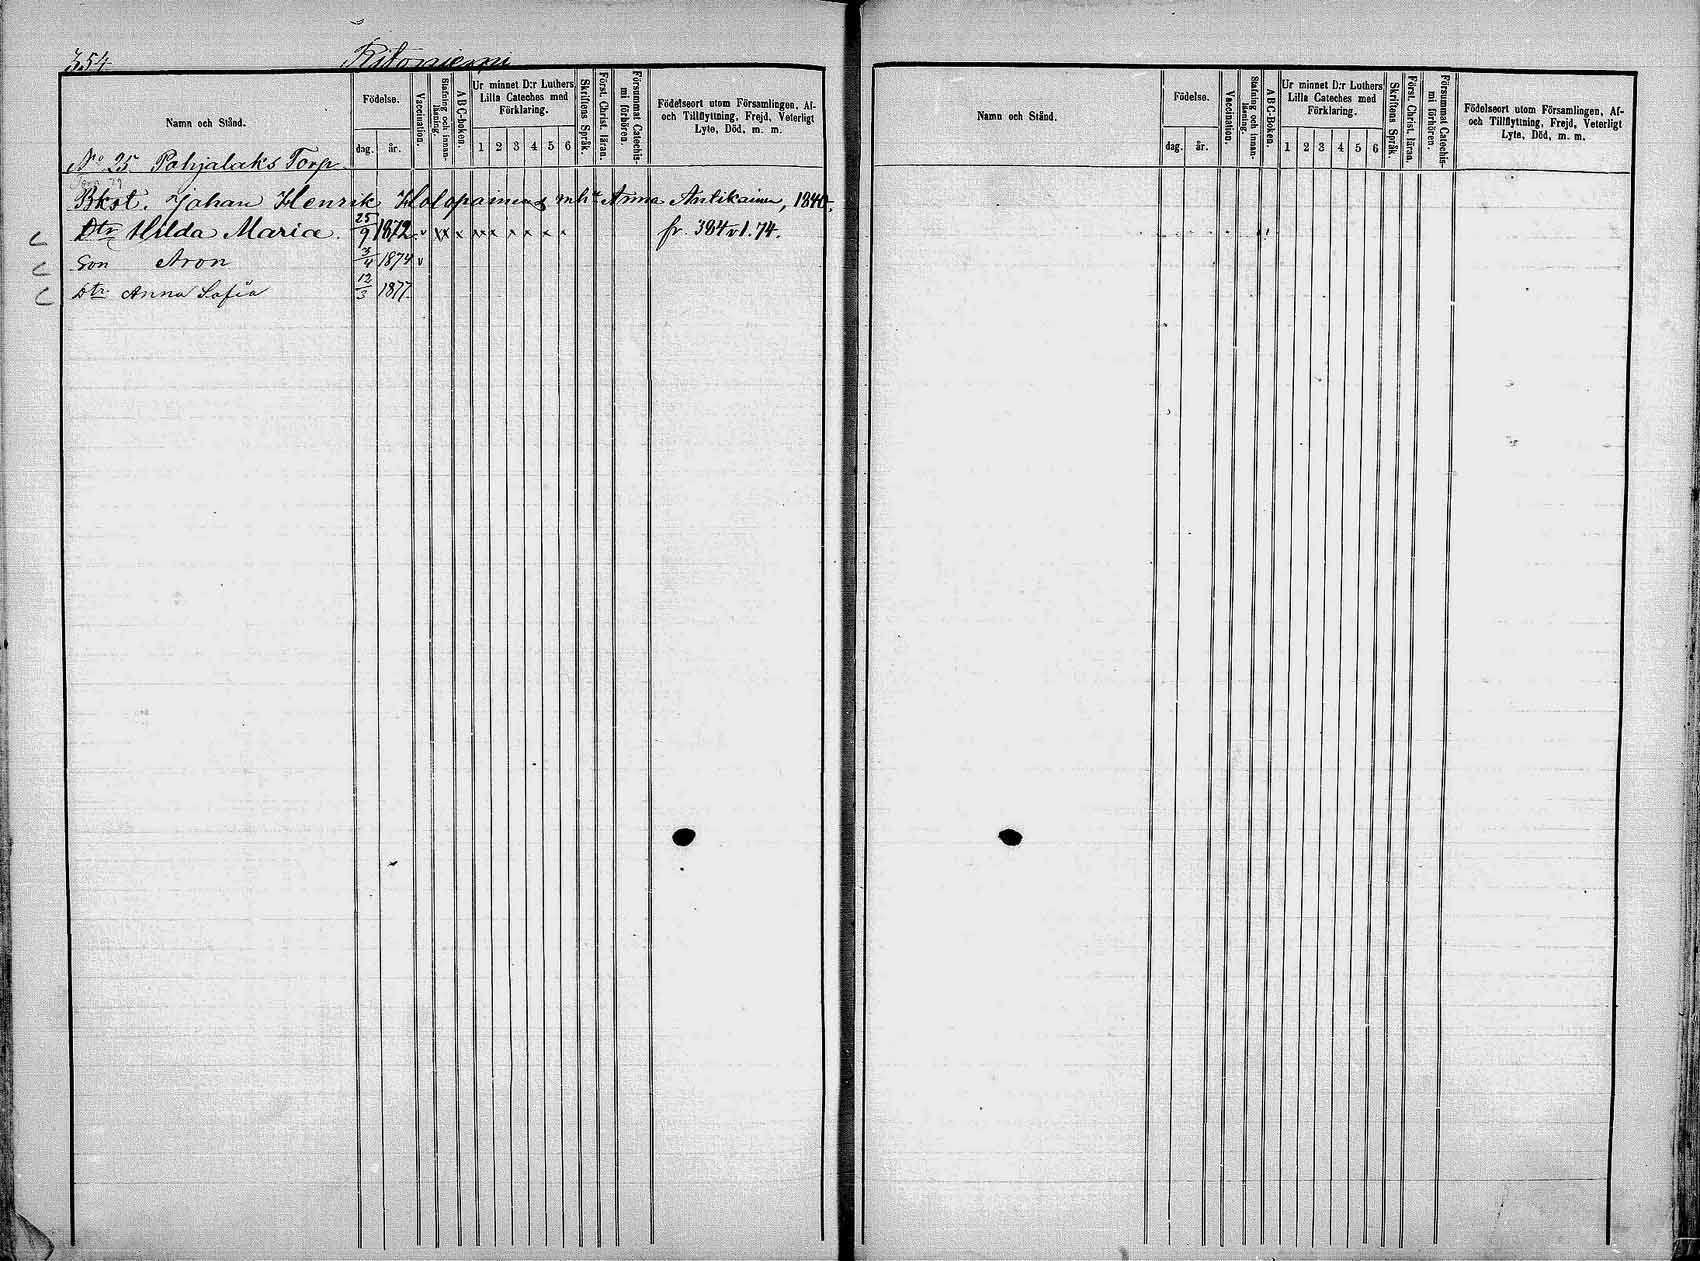 354 Ritoniemi
Namn och Stånd.
Födelse.
dag. år.
Vaccination.
Stafning och innan-läsning.
ABC-boken.
Ur minnet D:r Luthers Lilla Cateches med Förklaring.
1 2 3 4 5 6
Skriftens Språk.
Först. Christ. läran.
Försummat Catechis-mi förhören.
Födelseort utom Församlingen, Af- och Tillflyttning, Frejd, Veterligt Lyte, Död, m. m.
No 25 Pohjalaks Torp
Bkst. Johan Henrik Holopainens mh. Anna Antikainen, 1840.
Dtr Hilda Maria. 25/9 1872 v xx x xx x x x x x fr. 384 v 1.74.
Son Aron 3/4 1874 v
Dtr. Anna Sofia 12/3 1877.
Namn och Stånd.
Födelse.
dag. år.
Vaccination.
Stafning och innan-läsning.
ABC-Boken.
Ur minnet D:r Luthers Lilla Cateches med Förklaring.
1 2 3 4 5 6
Skriftens Språk.
Först. Christ. läran.
Försummat Catechis-mi förhören.
Födelseort utom Församlingen, Af- och Tillflyttning, Frejd, Veterligt Lyte, Död, m. m.